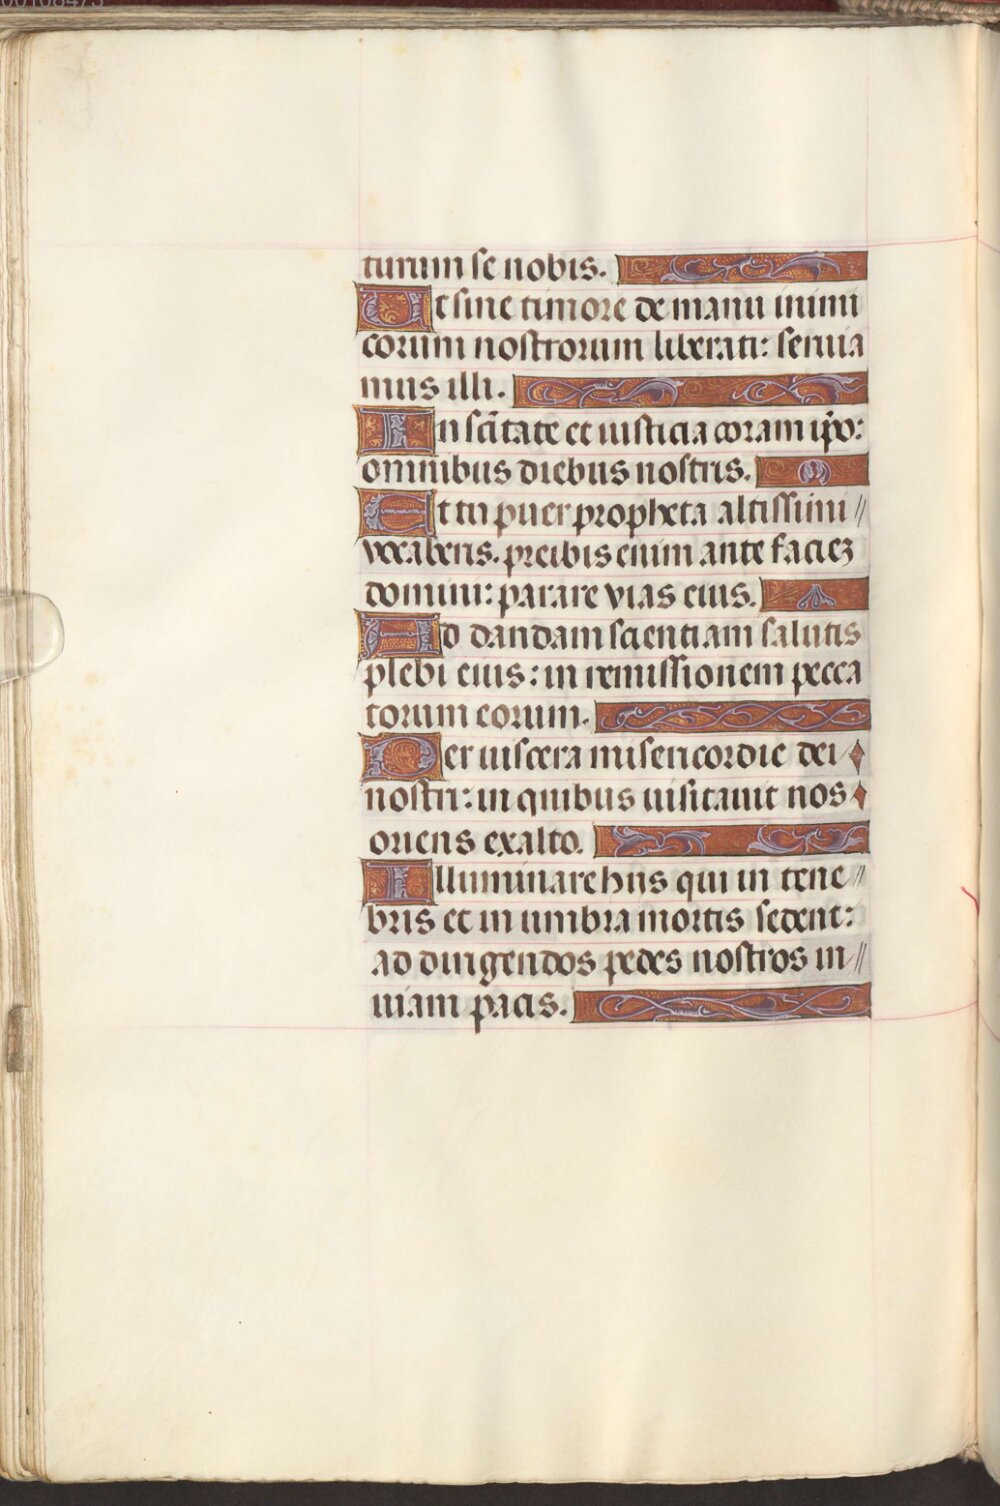 turum se nobis.
Ut sine timore de manu inimi
corum nostrorum liberati: seruia
mus illi.
In sc̄itate et iusticia coram ip̄o:
omnibus diebus nostris.
Et tu puer propheta altissimi //
vocaberis. preibis enim ante faciez
domini: parare vias eius.
Ad dandam scientiam salutis
plebi eius: in remissionem pecca
torum eorum.
Per uiscera misericordie dei
nostri: in quibus uisitauit nos
oriens exalto.
Illuminare hiis qui in tene //
bris et in umbra mortis sedent:
ad dirigendos pedes nostros in //
uiam pacis.